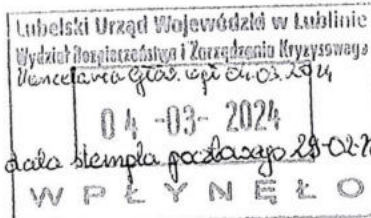 Lubelski Urząd Wojewódzki w Lublinie
Wydział Bezpieczeństwa i Zarządzania Kryzysowego
Kancelaria Głów. wpł 04.03.2024
04 -03- 2024
data stempla pocztowego 29-02-
WPŁYNĘŁO